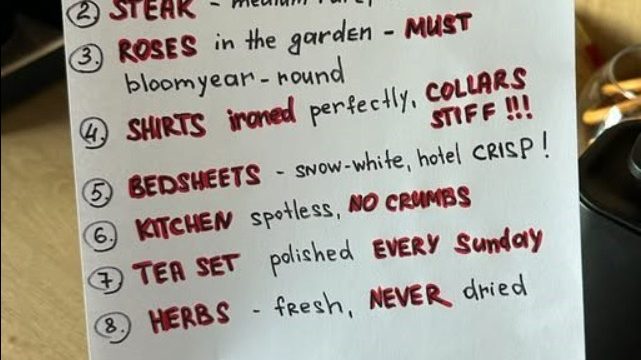 ② STEAK - medium rare,
③. ROSES in the garden - MUST
bloomyear-round
④. SHIRTS ironed perfectly, COLLARS
STIFF !!!
⑤. BEDSHEETS - snow-white, hotel CRISP !
⑥. KITCHEN spotless, NO CRUMBS
⑦ TEA SET polished EVERY Sunday
⑧. HERBS - fresh, NEVER dried